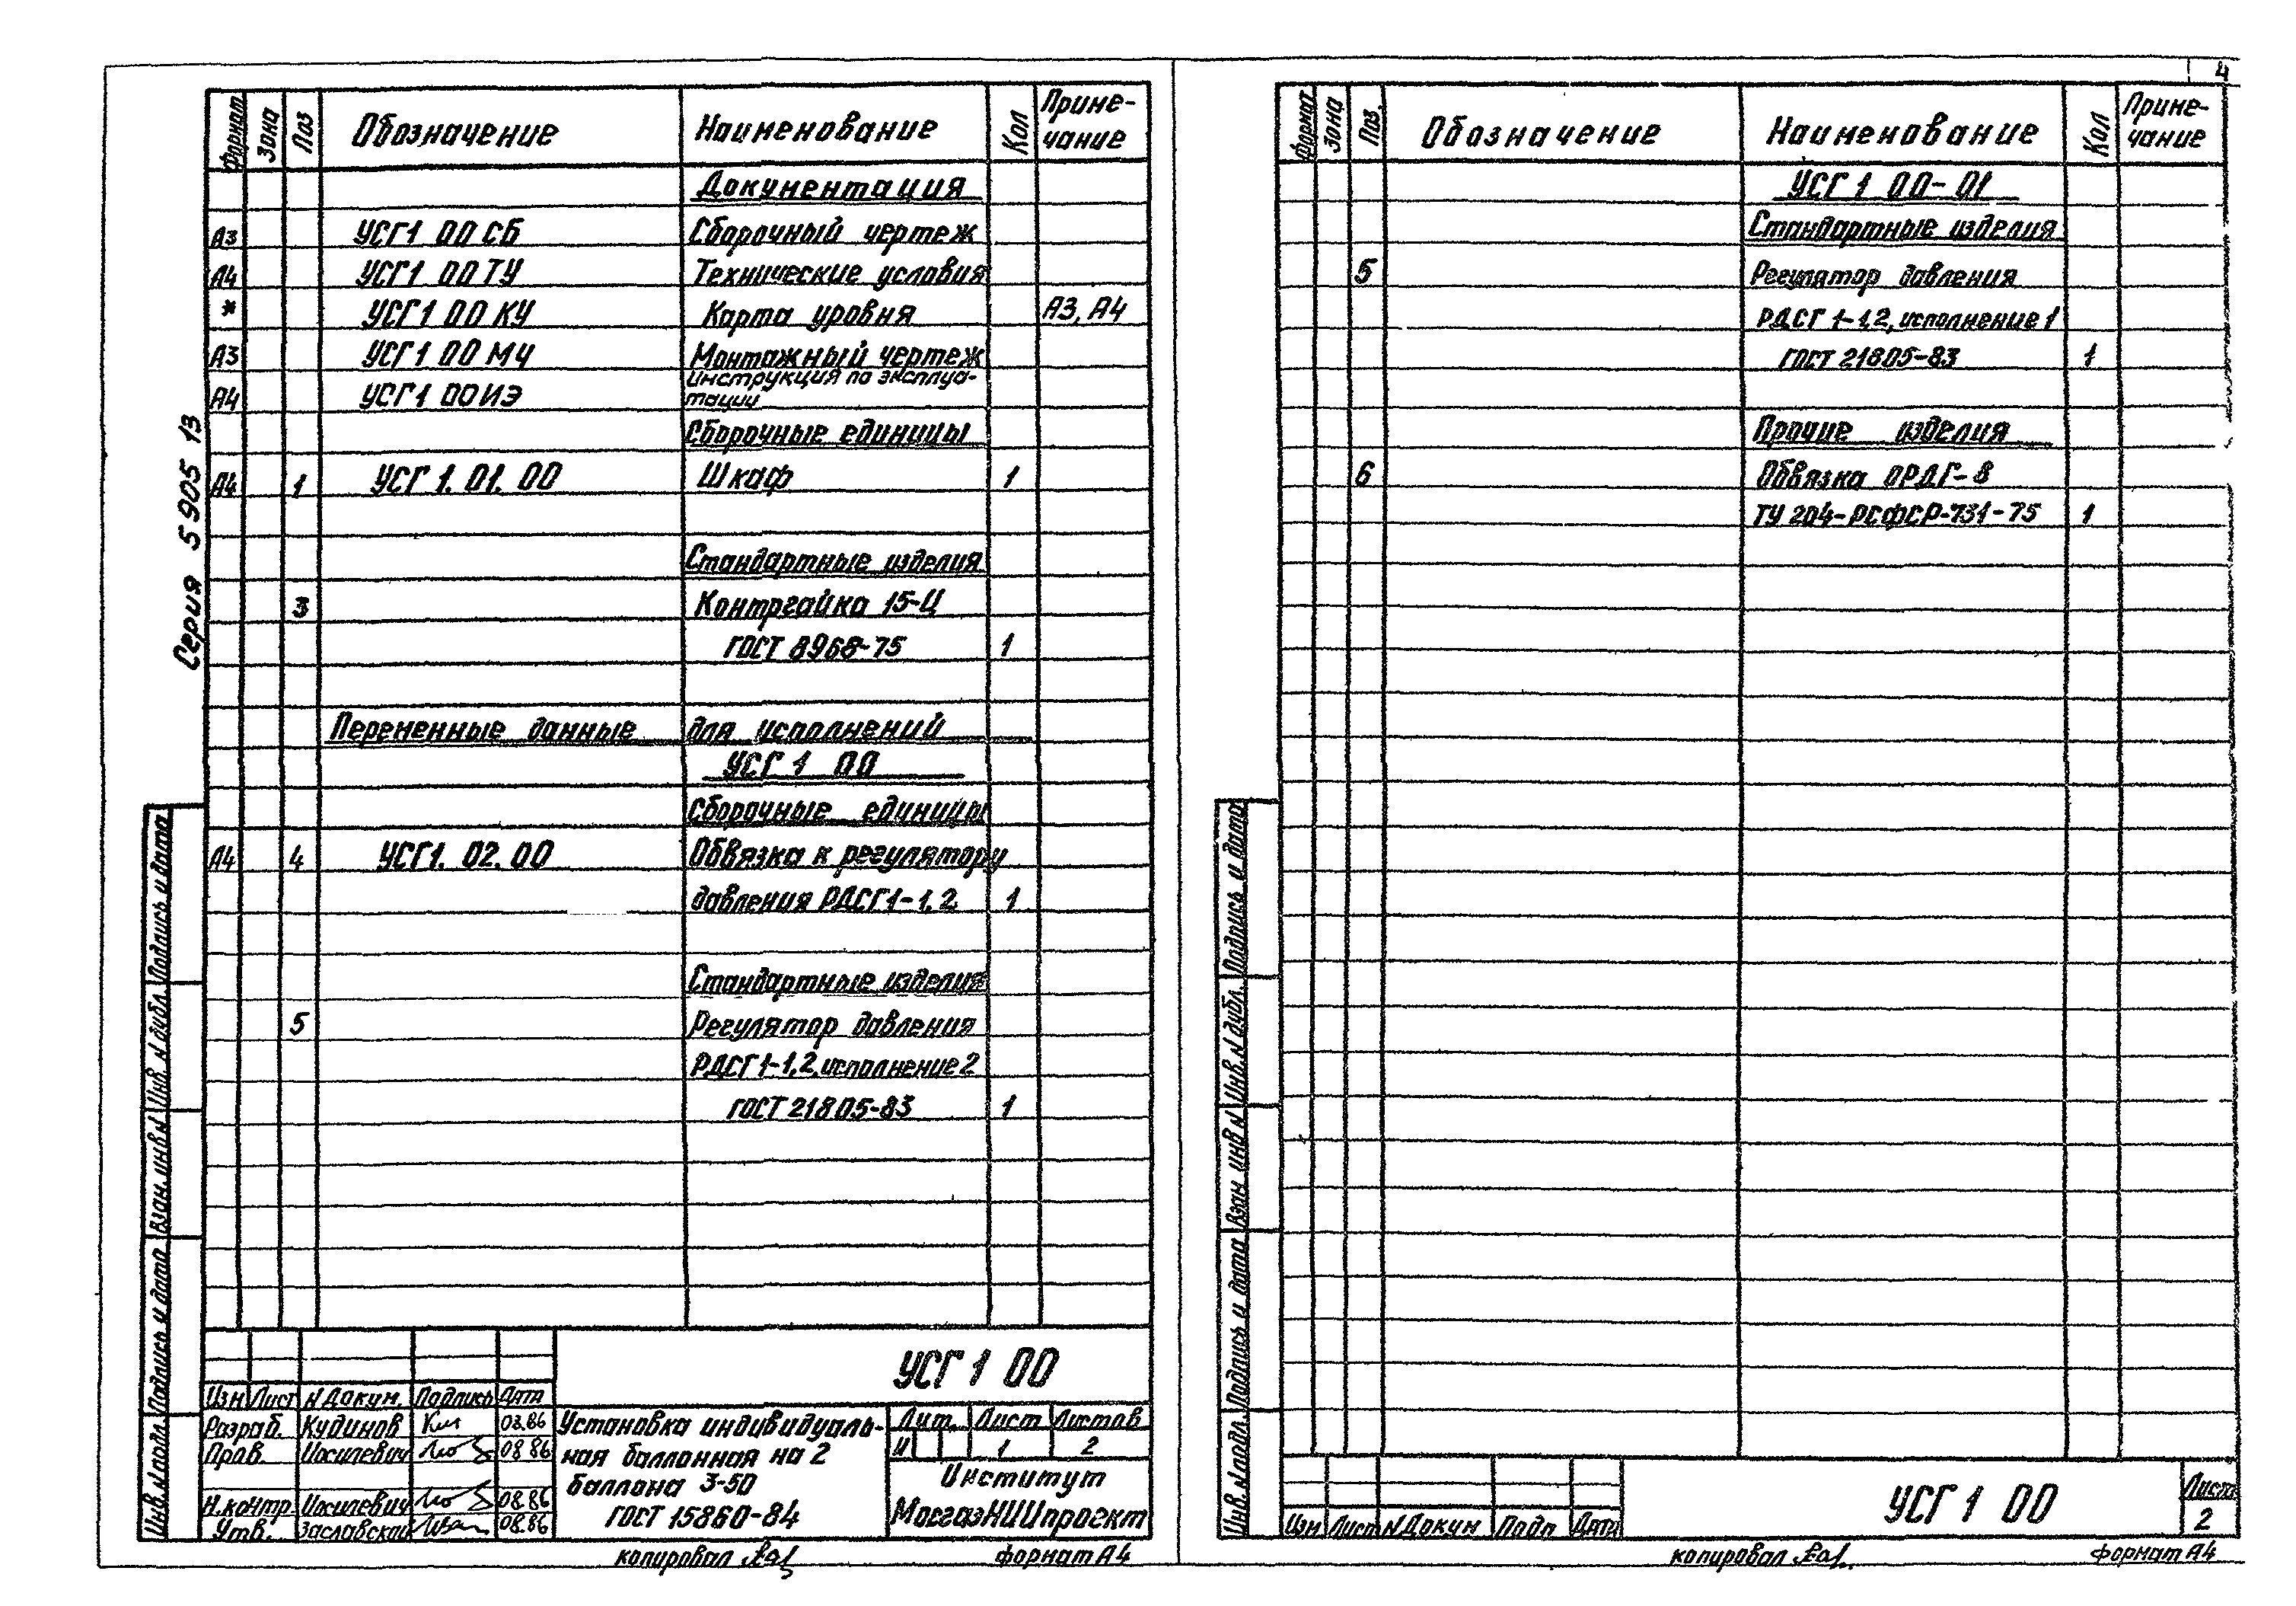 4
Серия 5 905 13
Формат Зона Поз Обозначение Наименование Кол Приме-
чание
Документация
А3 УСГ1 00 СБ Сборочный чертеж
А4 УСГ1 00 ТУ Технические условия
* УСГ1 00 КУ Карта уровня А3, А4
А3 УСГ1 00 МЧ Монтажный чертеж
А4 УСГ1 00ИЭ Инструкция по эксплуа-
тации
Сборочные единицы
А4 1 УСГ 1. 01. 00 Шкаф 1
Стандартные изделия
3 Контргайка 15-Ц
ГОСТ 8968-75 1
Переменные данные для исполнений
УСГ 1 00
Сборочные единицы
А4 4 УСГ1. 02. 00 Обвязка к регулятору
давления РДСГ1-1,2 1
Стандартные изделия
5 Регулятор давления
РДСГ1-1,2, исполнение 2
ГОСТ 21805-83 1
Инв. N подл. Подпись и дата Взам. инв N Инв. N дубл. Подпись и дата
УСГ 1 00
Изм Лист N Докум. Подпись Дата
Разраб. Кудинов 03.86
Пров. Иосилевич 08 86
Н.контр. Иосилевич 08.86
Утв. Заславский 08.86
Установка индивидуаль-
ная баллонная на 2
баллона 3-50
ГОСТ 15860-84
Лит. Лист Листов
И 1 2
Институт
МосгазНИИпроект
копировал формат А4
Формат Зона Поз. Обозначение Наименование Кол Приме-
чание
УСГ 1 00-01
Стандартные изделия
5 Регулятор давления
РДСГ 1-1,2, исполнение 1
ГОСТ 21805-83 1
Прочие изделия
6 Обвязка ОРДГ-8
ТУ 204-РСФСР-731-75 1
Инв. N подл. Подпись и дата Взам инв N Инв. N дубл. Подпись и дата
Изм Лист N Докум Подп Дата
УСГ 1 00
Листа
2
копировал формат А4